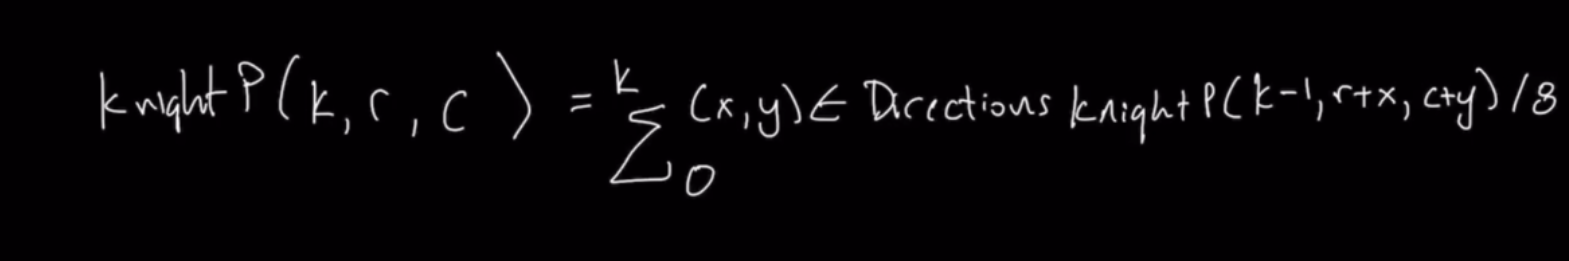 knightP(k, r, c) = k∑0 (x,y)∈ Directions knightP(k-1, r+x, c+y)/8